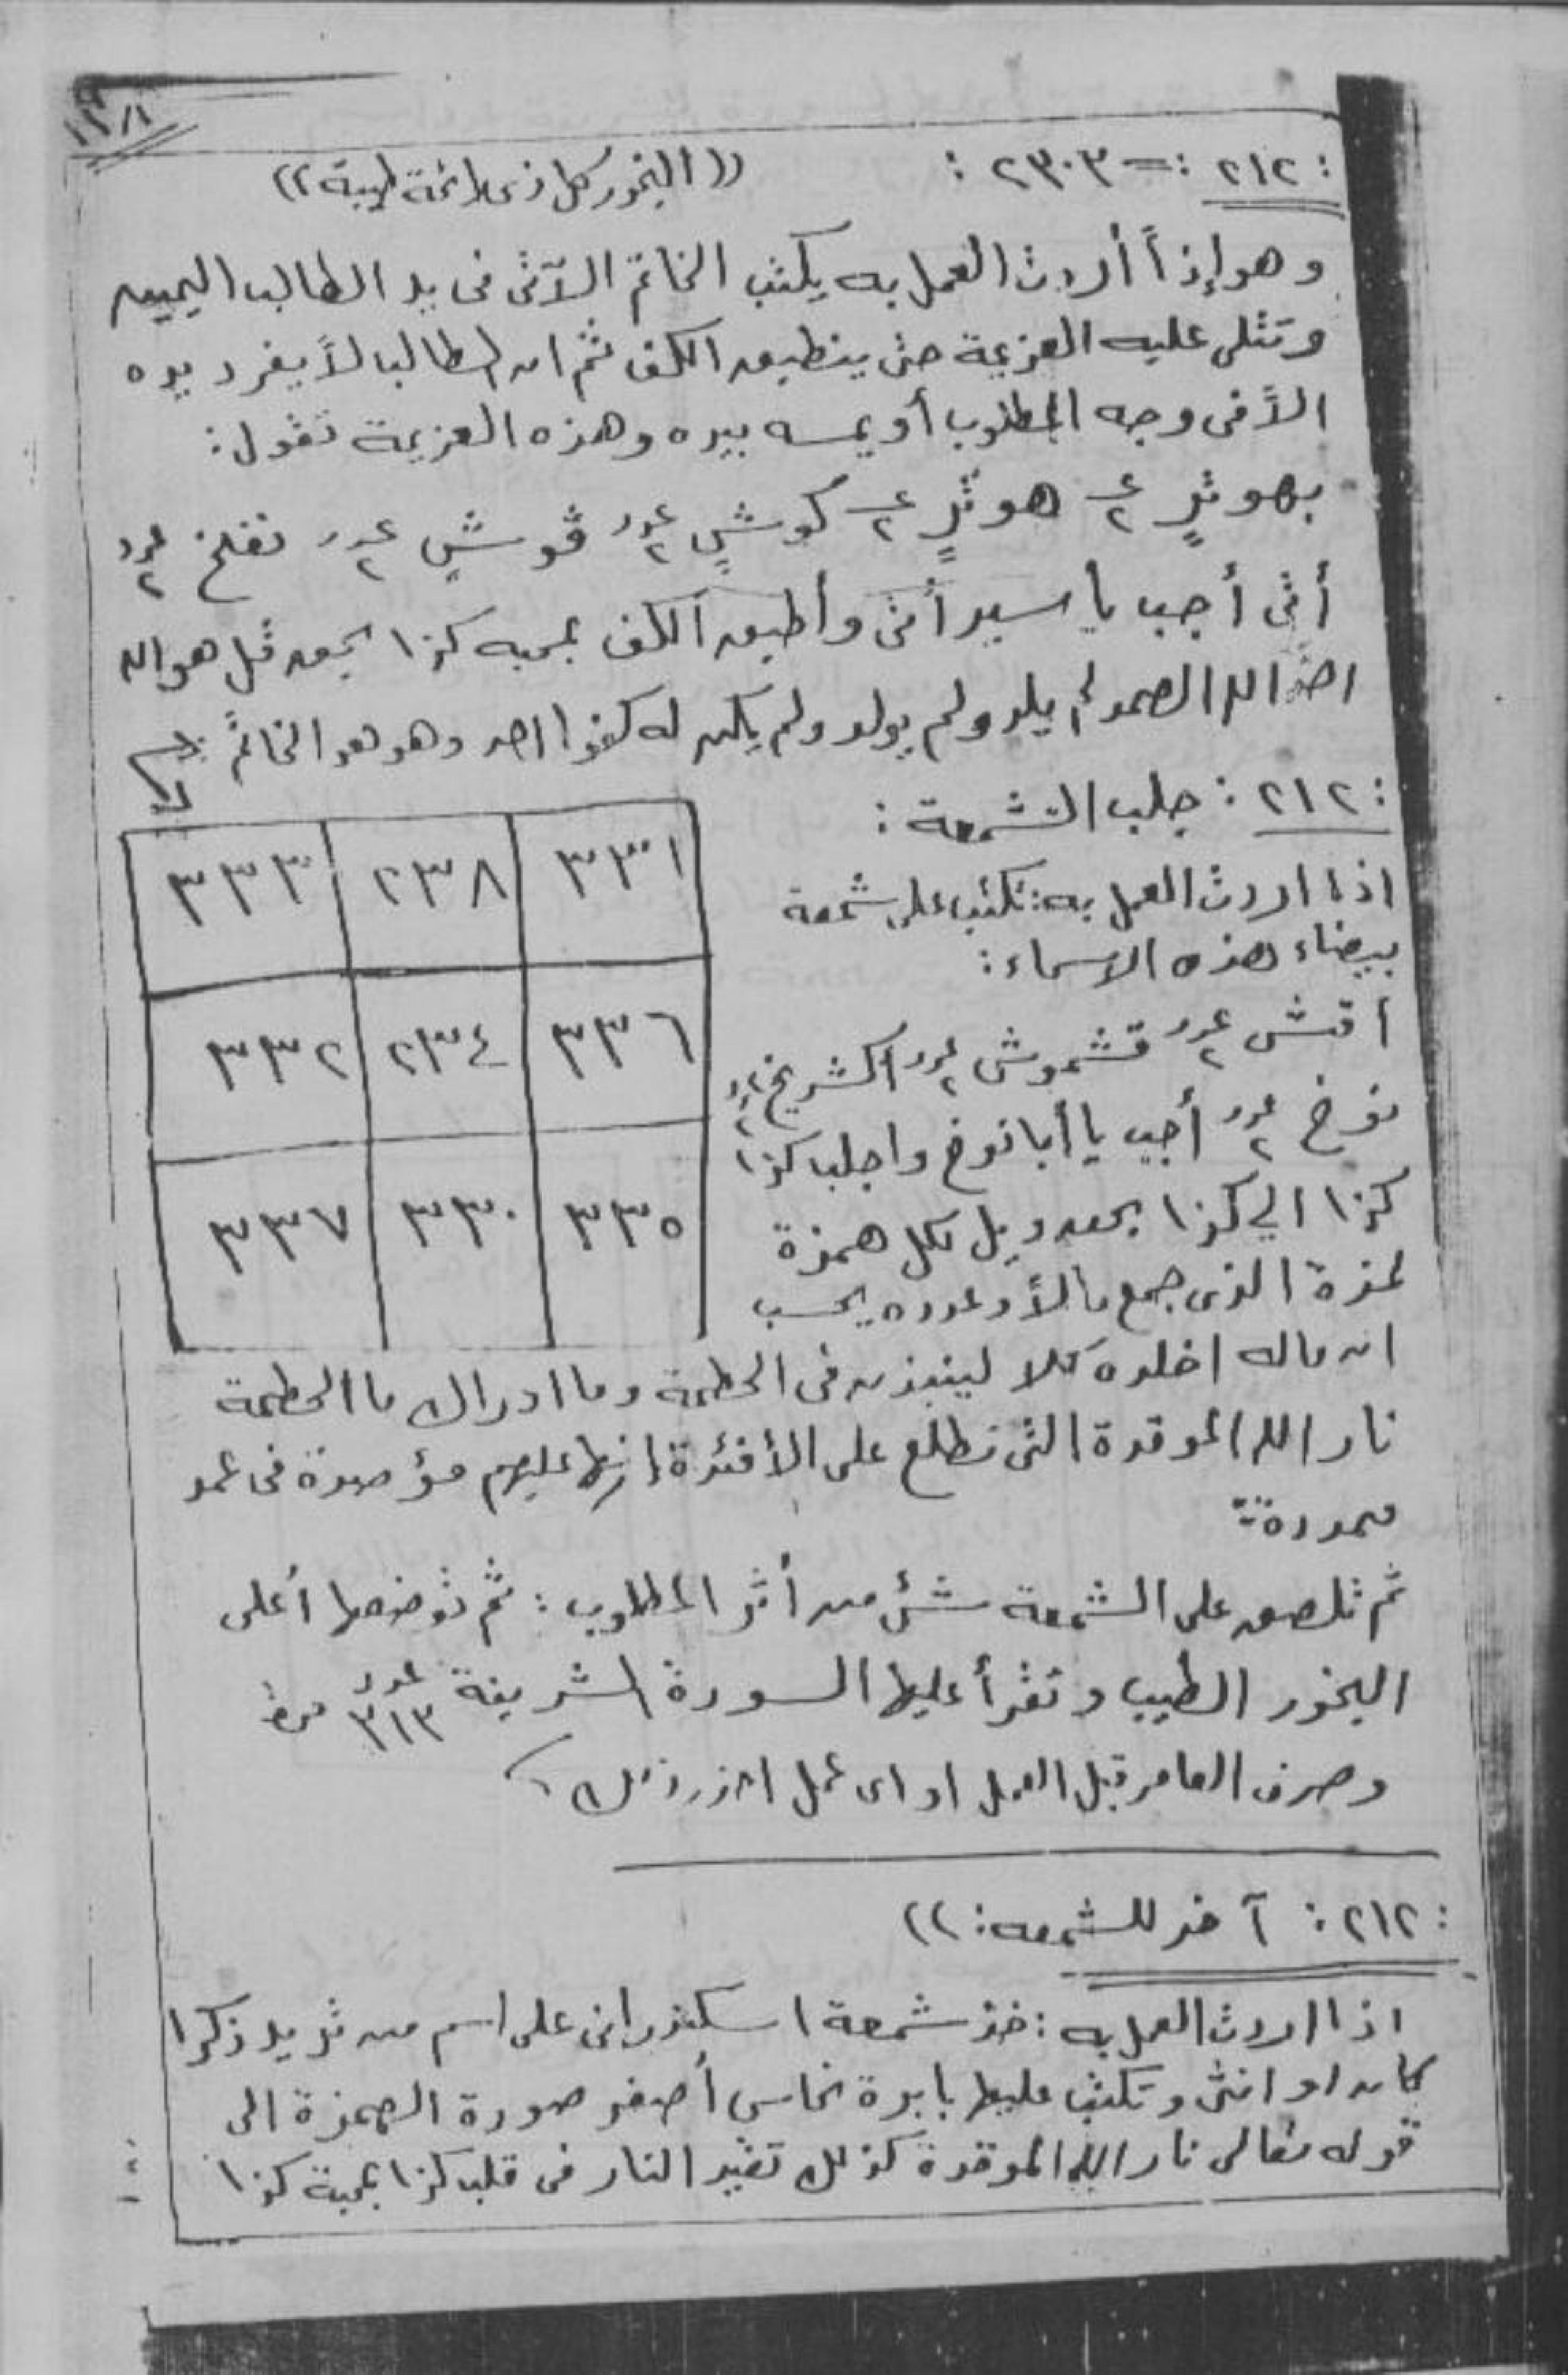 : ٢١٢ := ٢٣٠٣ : (( البخور كل ذى رائحة طيبة ))
وهو إذاً أردت العمل به يكتب الخاتم الآتى فى يد الطالب اليمين
وتتلى عليه العزيمة حتى ينطبق الكف ثم ان الطالب لا يفرد يده
الاّ فى وجه المطلوب أو يمسه بيده وهذه العزيمة تقول :
بهوثٍ عـ٢ هوثٍ عـ٢ كوشٍ عدد٢ قوشٍ عدد٢ نغلخ عدد٢
أنى أجب يا سيد أنى وأطبق الكف بمحبه كذا بحق قل هو الله
احد الله الصمد لم يلد ولم يولد ولم يكن له كفوا احد وهو هو الخاتم
٣٣١ ٢٣٨ ٣٣٣
٣٣٦ ٢٣٤ ٣٣٢
٣٣٥ ٣٣٠ ٣٣٧
: ٢١٢ : جلب الشمعة :
اذا اردت العمل به : تكتب على شمعة
بيضاء هذه الاسماء :
اقش عدد٢ قشموش عدد٢ اكشريخ عدد٢
نوخ عدد٢ أجيب يا أبا نوخ واجلب كذا
كذا الي كذا بحق ويل لكل همزة
لمزة الذى جمع مالاً وعدده يحسب
ان ماله اخلده كلا لينبذن فى الحطمة وما ادراك ما الحطمة
نار الله الموقدة التى تطلع على الأفئدة انها عليهم مؤصدة فى عمد
ممددة
ثم تلصق على الشمعة شئ من أثر المطلوب : ثم توضعها أعلى
البخور الطيب وتقرأ عليها السورة الشريفة عدد ٣١٣ مرة
وصرف العامر قبل العمل او اى عمل
: ٢١٢ : آخر للشمعه : ))
اذا اردت العمل به : خذ شمعة اسكندرانى على اسم من تريد ذكرا
كان او انثى وتكتب عليها بابرة نحاس أصفر صورة الهمزة الى
قوله تعالى نار الله الموقدة كذلك تقيد النار فى قلب كذا بمحبة كذا